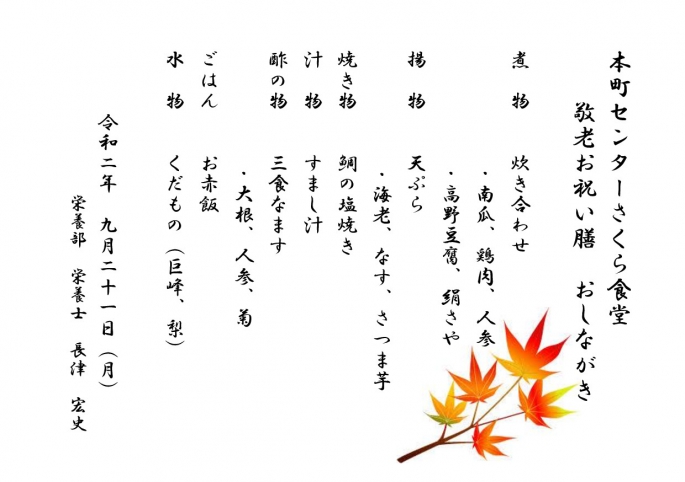 本町センターさくら食堂
敬老お祝い膳　おしながき
煮　物　　炊き合わせ
・南瓜、鶏肉、人参
・高野豆腐、絹さや
揚　物　　天ぷら
・海老、なす、さつま芋
焼き物　　鯛の塩焼き
汁　物　　すまし汁
酢の物　　三食なます
・大根、人参、菊
ごはん　　お赤飯
水　物　　くだもの（巨峰、梨）
令和二年　九月二十一日（月）
栄養部　栄養士　長津　宏史